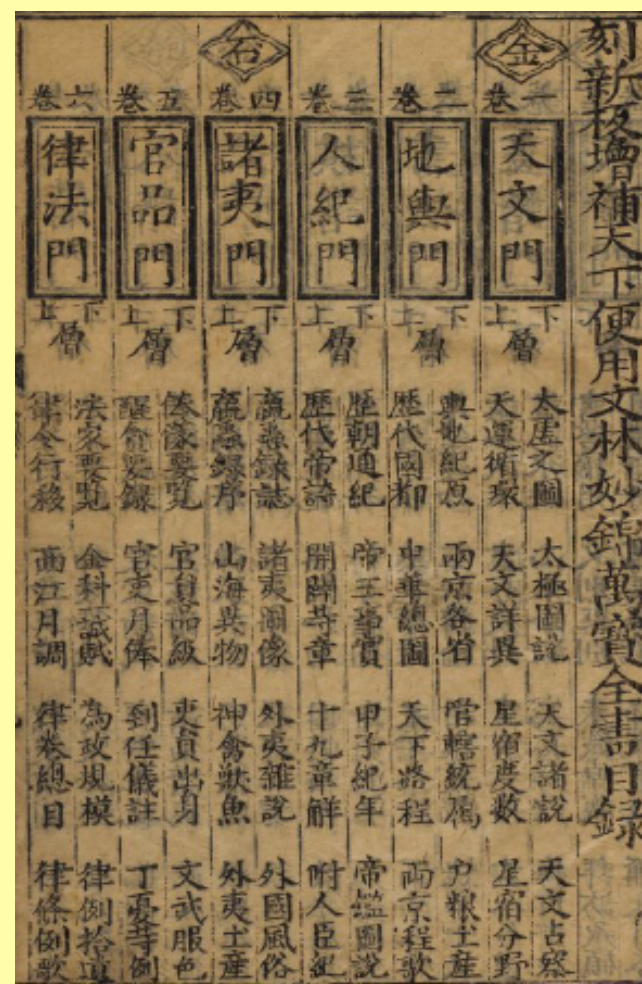 刻新板增補天下便用文林妙錦萬寶全書目錄
金
一卷
天文門
上下層
太虛之圖 太極圖說 天文諸說 天文占察
天運循環 天文詳異 星宿度數 星宿分野
二卷
地輿門
上下層
輿地紀原 兩京各省 管轄統屬 戶粮土產
歷代國都 中華總圖 天下路程 兩京程歌
三卷
人紀門
上下層
歷朝通紀 帝王事實 甲子紀年 帝鑑圖說
歷代帝詩 開闢等章 十九章解 附人臣紀
石
四卷
諸夷門
上下層
臝蟲錄誌 諸夷圖像 外夷雜說 外國風俗
臝蟲錄序 山海異物 神禽獸魚 外夷土產
五卷
官品門
上下層
要覽 官員品級 吏員出身 文武服色
要錄 官吏月俸 到任儀註 丁憂等例
六卷
律法門
上下層
法家要覽 金科誠賦 為政規模 律例拾遺
律令行移 西江月調 律卷總目 律條例歌